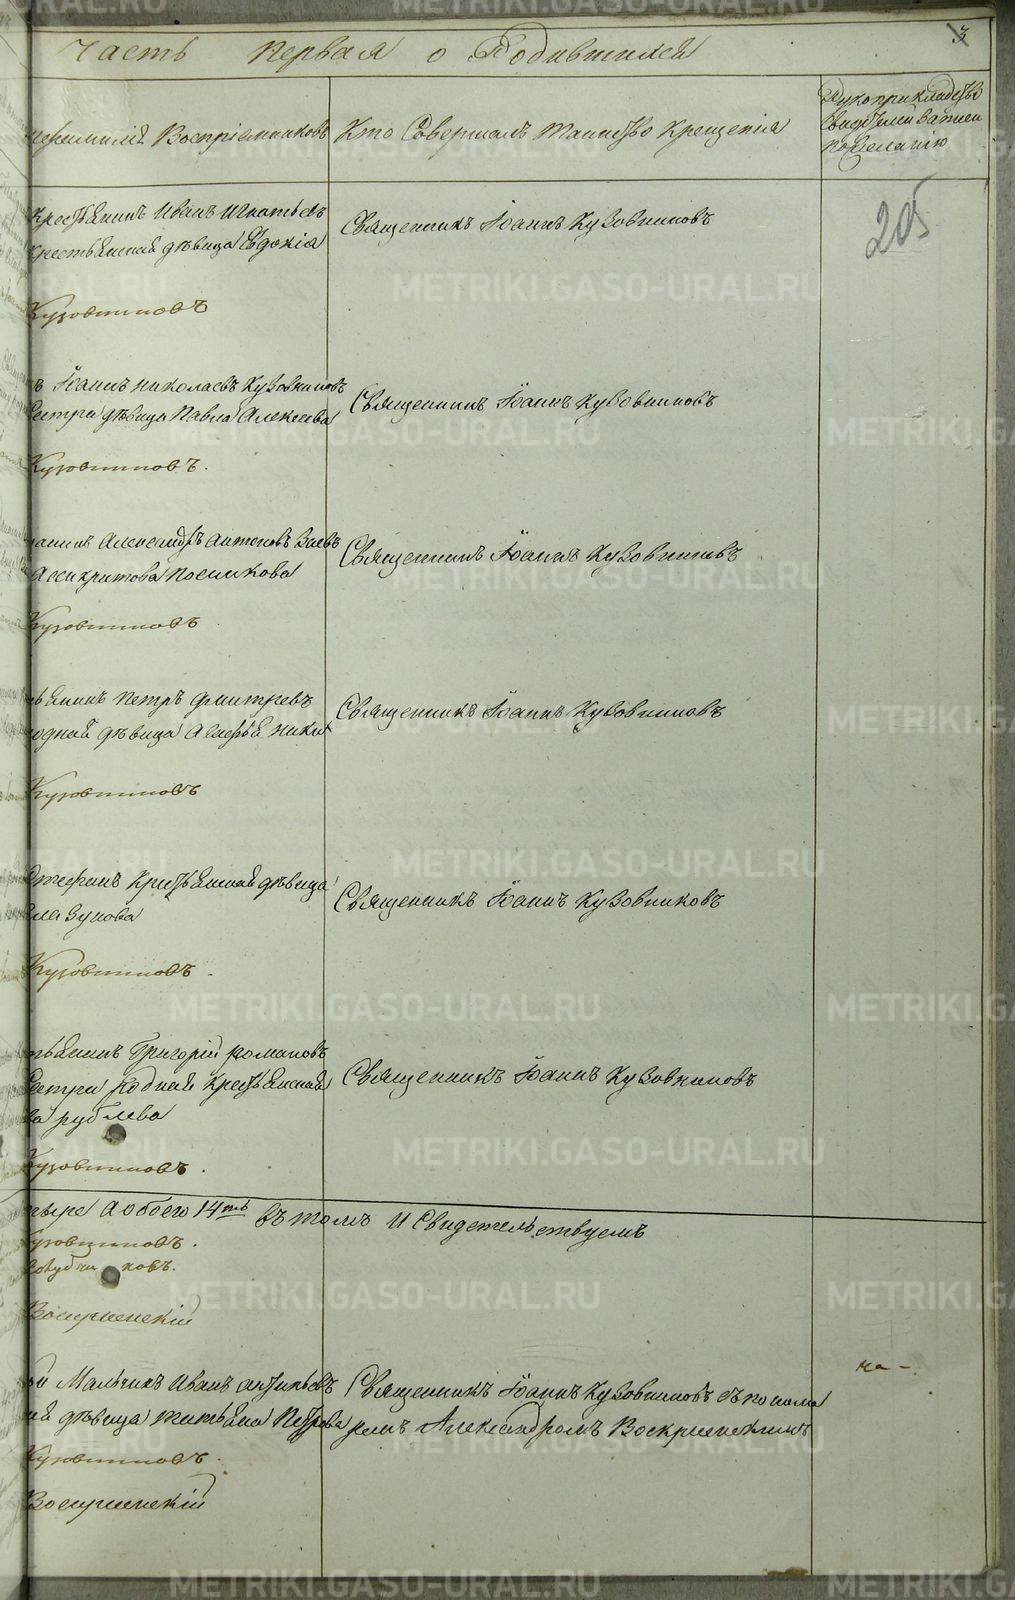 3
Часть Первая о Родившихся
Воспріемниковъ
Кто Совершалъ Таинство Крещенія
Рукоприкладство
Свидетелей записи
по желанію
205
Крестьянинъ Иванъ Игнатьевъ
Крестьянская дѣвица Евдокія
Священникъ Іоаннъ Кузовниковъ
Кузовниковъ
Іоаннъ Николаевъ Кузовниковъ
дѣвица Павла Алексѣева
Священникъ Іоаннъ Кузовниковъ
Кузовниковъ.
Александръ Антоновъ
Посникова
Священникъ Іоаннъ Кузовниковъ
Кузовниковъ
Петръ Дмитревъ
дѣвица
Священникъ Іоаннъ Кузовниковъ
Кузовниковъ
Крестьянская дѣвица
Священникъ Іоаннъ Кузовниковъ
Кузовниковъ.
Григорій Романовъ
родная Крестьянская
Рублева
Священникъ Іоаннъ Кузовниковъ
Кузовниковъ.
А обоего 14ть въ томъ И Свидетельствуемъ
Кузовниковъ.
Воскресенскій
Мальчикъ Иванъ
дѣвица Татьяна Петрова
Священникъ Іоаннъ Кузовниковъ съ понома
ремъ Александромъ Воскресенскимъ
Кузовниковъ.
Воскресенскій
METRIKI.GASO-URAL.RU